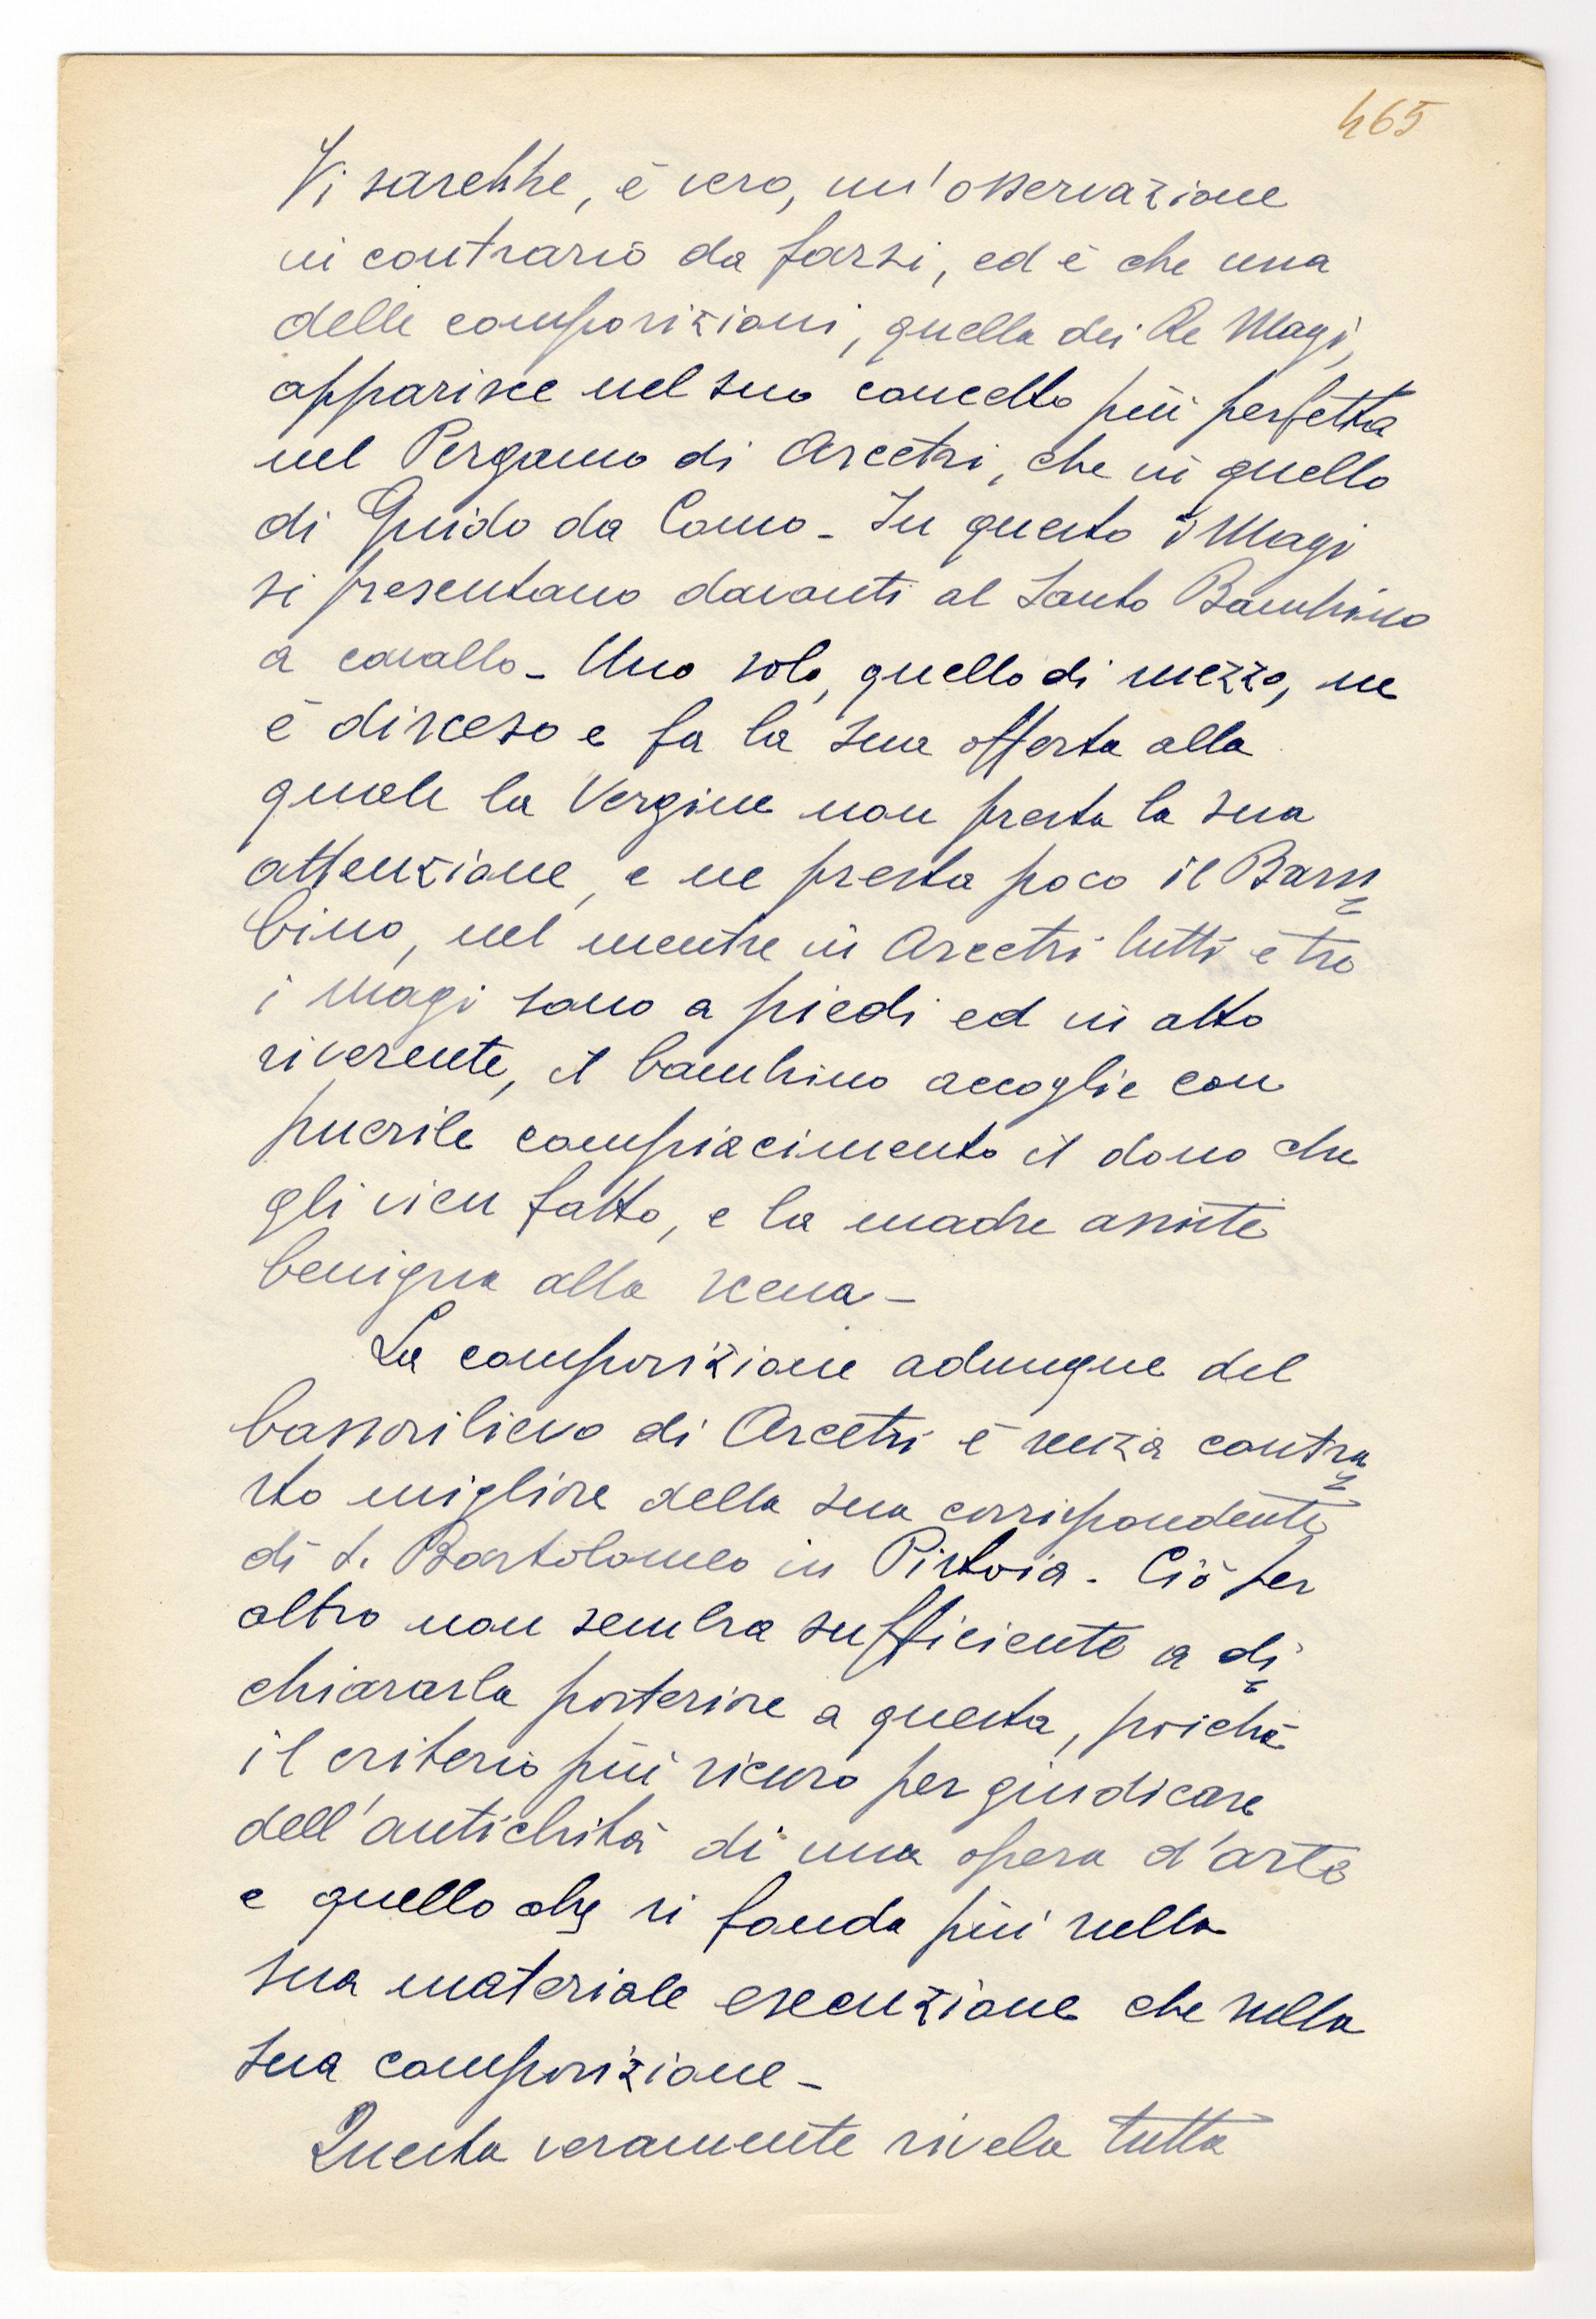 465
Vi sarebbe, è vero, un'osservazione
in contrario da farsi, ed è che una
delle composizioni, quella dei Re Magi,
apparisce nel suo concetto più perfetta
nel Pergamo di Arcetri, che in quello
di Guido da Como - In questo i Magi
si presentano davanti al Santo Bambino
a cavallo - Uno solo, quello di mezzo, ne
è disceso e fa la sua offerta alla
quale la Vergine non presta la sua
attenzione, e ne presta poco il Bam=
bino, nel mentre in Arcetri tutti e tre
i Magi sono a piedi ed in atto
riverente, il bambino accoglie con
puerile compiacimento il dono che
gli vien fatto, e la madre assiste
benigna alla scena -
La composizione adunque del
bassorilievo di Arcetri è senza contra=
sto migliore della sua corrispondente
di S. Bartolomeo in Pistoia - Ciò per
altro non sembra sufficiente a di=
chiararla posteriore a questa, poiché
il criterio più sicuro per giudicare
dell'antichità di una opera d'arte
e quello che si fonda più sulla
sua materiale esecuzione che sulla
sua composizione -
Questa veramente rivela tutta